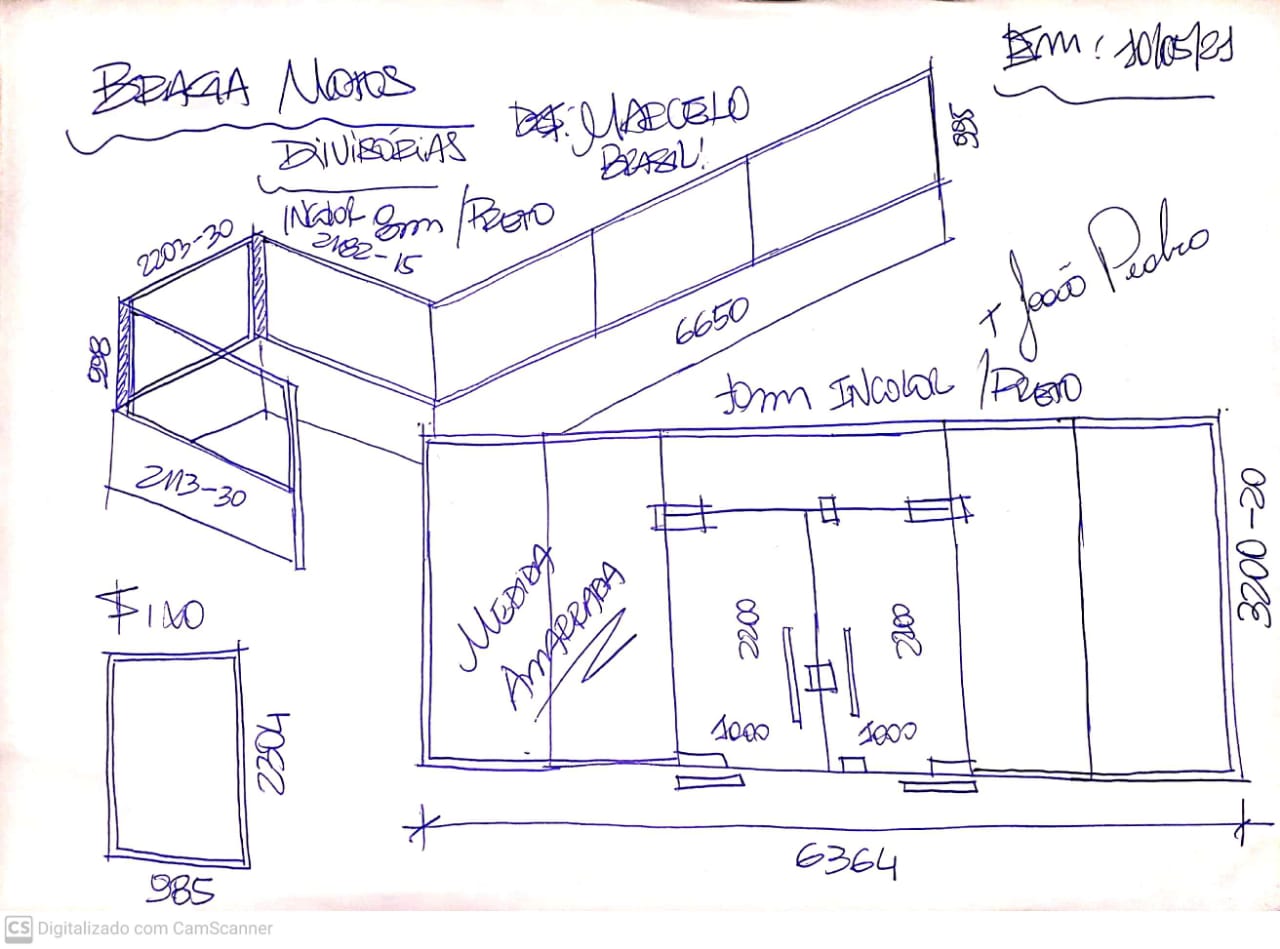 BRAGA MOTOS
Em: 10/05/21
DIVISÓRIAS
DES: MARCELO
BRASIL!
INCOLOR 8mm / PRETO
2203-30
2182-15
995
998
6650
+ João Pedro
10mm INCOLOR / PRETO
2113-30
3200-20
MEDIDA
AMARRADA
2200
2200
1000
1000
FIXO
2304
985
6364
CS Digitalizado com CamScanner